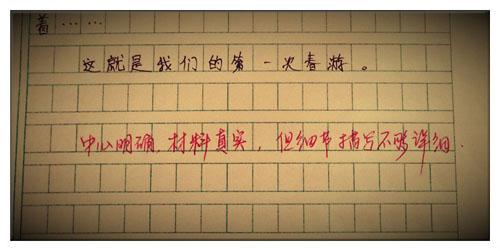 着……
这就是我们的第一次春游。
中心明确,材料真实,但细节描写不够详细.